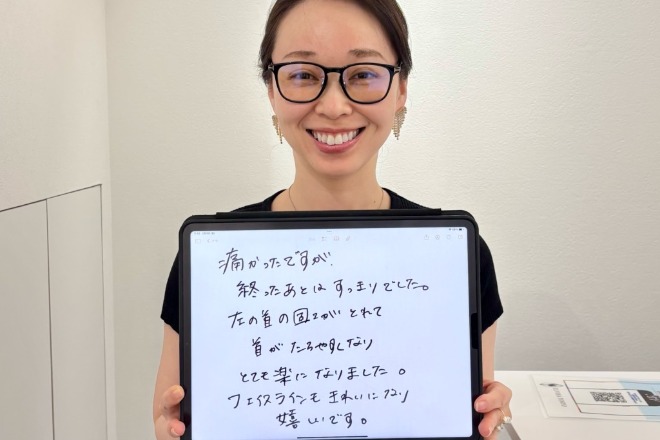 痛かったですが、
終ったあとは すっきりでした。
左の首の固さがとれて
首が たちやすくなり
とても楽に なりました。
フェイスラインもきれいになり
嬉しいです。